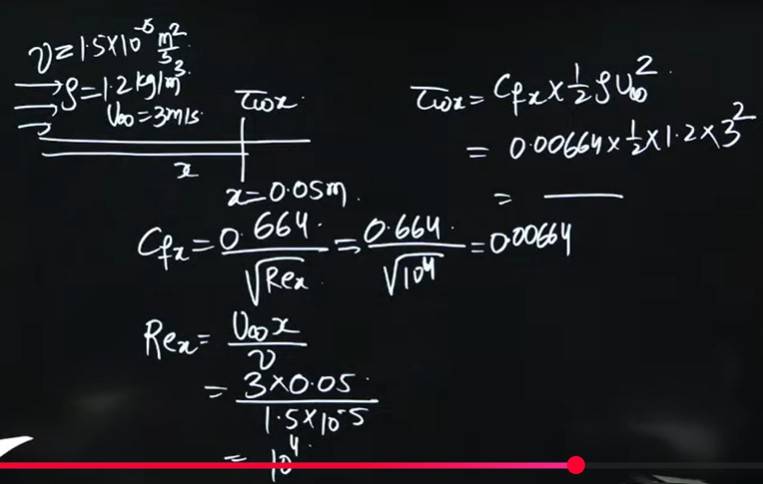 ν = 1.5×10^-5 m²/s
ρ = 1.2 kg/m³
U∞ = 3m/s
τwx
x
x = 0.05m.
Cfx = 0.664 / √Rex = 0.664 / √10⁴ = 0.00664
Rex = U∞x / ν
= 3×0.05 / 1.5×10^-5
= 10⁴
τwx = Cfx × ½ ρU∞²
= 0.00664 × ½ × 1.2 × 3²
= ____